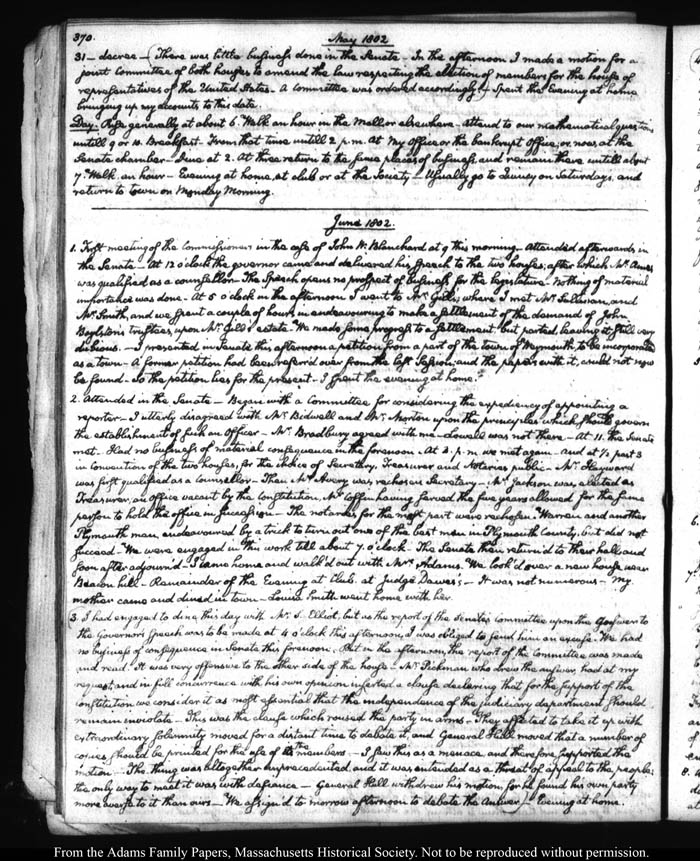 370.
May 1802
31 — decree — (There was little business done in the Senate — In the afternoon I made a motion for a
joint Committee of both houses to amend the law respecting the election of members for the house of
representatives of the United States. A Committee was ordered accordingly) — Spent the Evening at home
bringing up my accounts to this date.
Day. Rise generally at about 6. Walk an hour in the Mall or elsewhere — attend to our mathematical questions
untill 9 or 10. Breakfast. From that time untill 2 p.m. At my office or the bankrupt office; or now, at the
Senate chamber. Dine at 2. At three return to the same places of business and remain there untill about
7. Walk an hour — Evening at home, at club or at the Society — Usually go to Quincy on Saturdays, and
return to town on Monday Morning.
June 1802.
1. First meeting of the Commissioners in the case of John W. Blanchard at 9 this morning. Attended afterwards in
the Senate — At 12 o'clock the governor came and delivered his speech to the two houses; after which Mr. Ames
was qualified as a counsellor — The Speech opens no prospect of business for the legislature. Nothing of material
importance was done. At 5 o'clock in the afternoon I went to Mr. Gill's; where I met Mr. Sullivan, and
Mr. Smith, and we spent a couple of hours in endeavouring to make a settlement of the demand of John
Boylston's trustees upon Mr. Gill's estate. We made some progress to a settlement but parted leaving it still very
dubious. — I presented in Senate this afternoon a petition from a part of the town of Weymouth, to be incorporated
as a town. A former petition had been referr'd over from the last Session; and the papers with it, could not now
be found. So the petition lies for the present. I spent the evening at home.
2. Attended in the Senate — Began with a Committee for considering the expediency of appointing a
reporter — I utterly disagreed with Mr. Bidwell and Mr. Morton upon the principles which should govern
the establishment of such an Officer — Mr. Bradbury agreed with me — Lowell was not there — At 11. the Senate
met. Had no business of material consequence in the forenoon. At 3. p.m. we met again. and at ½ past 3
in convention of the two houses, for the choice of Secretary, Treasurer and Notaries public — Mr. Hayward
was first qualified as a Counsellor. Then Mr. Avery was rechosen Secretary — Mr. Jackson was elected as
Treasurer, an office vacant by the Constitution, Mr. Coffin having served the five years allowed for the same
person to hold the office in succession. The notaries for the most part were rechosen. Warren and another
Plymouth man, endeavoured by a trick to turn out one of the best men in Plymouth County, but did not
succeed. We were engaged in this work till about 7 o'clock. The Senate then return'd to their hall, and
soon after adjourn'd. I came home and walk'd out with Mrs. Adams. We look'd over a new house near
Beacon hill — Remainder of the Evening at Club. at Judge Dawes's — It was not numerous — My
mother came and dined in town — Louisa Smith went home with her.
3. I had engaged to dine this day with Mr. S. Elliot, but as the report of the Senate's committee upon the answer to
the Governor's Speech was to be made at 4 o'clock this afternoon, I was obliged to send him an excuse. We had
no business of consequence in Senate this forenoon. But in the afternoon, the report of the Committee was made
and read. It was very offensive to the other side of the house — Mr. Pickman who drew the answer, had at my
request, and in full concurrence with his own opinion inserted a clause declaring that for the support of the
Constitution we consider it as most essential that the independence of the judiciary department should
remain inviolate — This was the clause which roused the party in arms — They affected to take it up with
extraordinary solemnity moved for a distant time to debate it; and General Hull moved that a number of
copies should be printed for the use of the members — I saw this as a menace and therefore supported the
motion. The thing was altogether unprecedented, and it was intended as a threat of appeal to the people:
the only way to meet it was with defiance — General Hull withdrew his motion; for he found his own party
more averse to it than ours — We assign'd to morrow afternoon to debate the answer) — Evening at home.
From the Adams Family Papers, Massachusetts Historical Society. Not to be reproduced without permission.